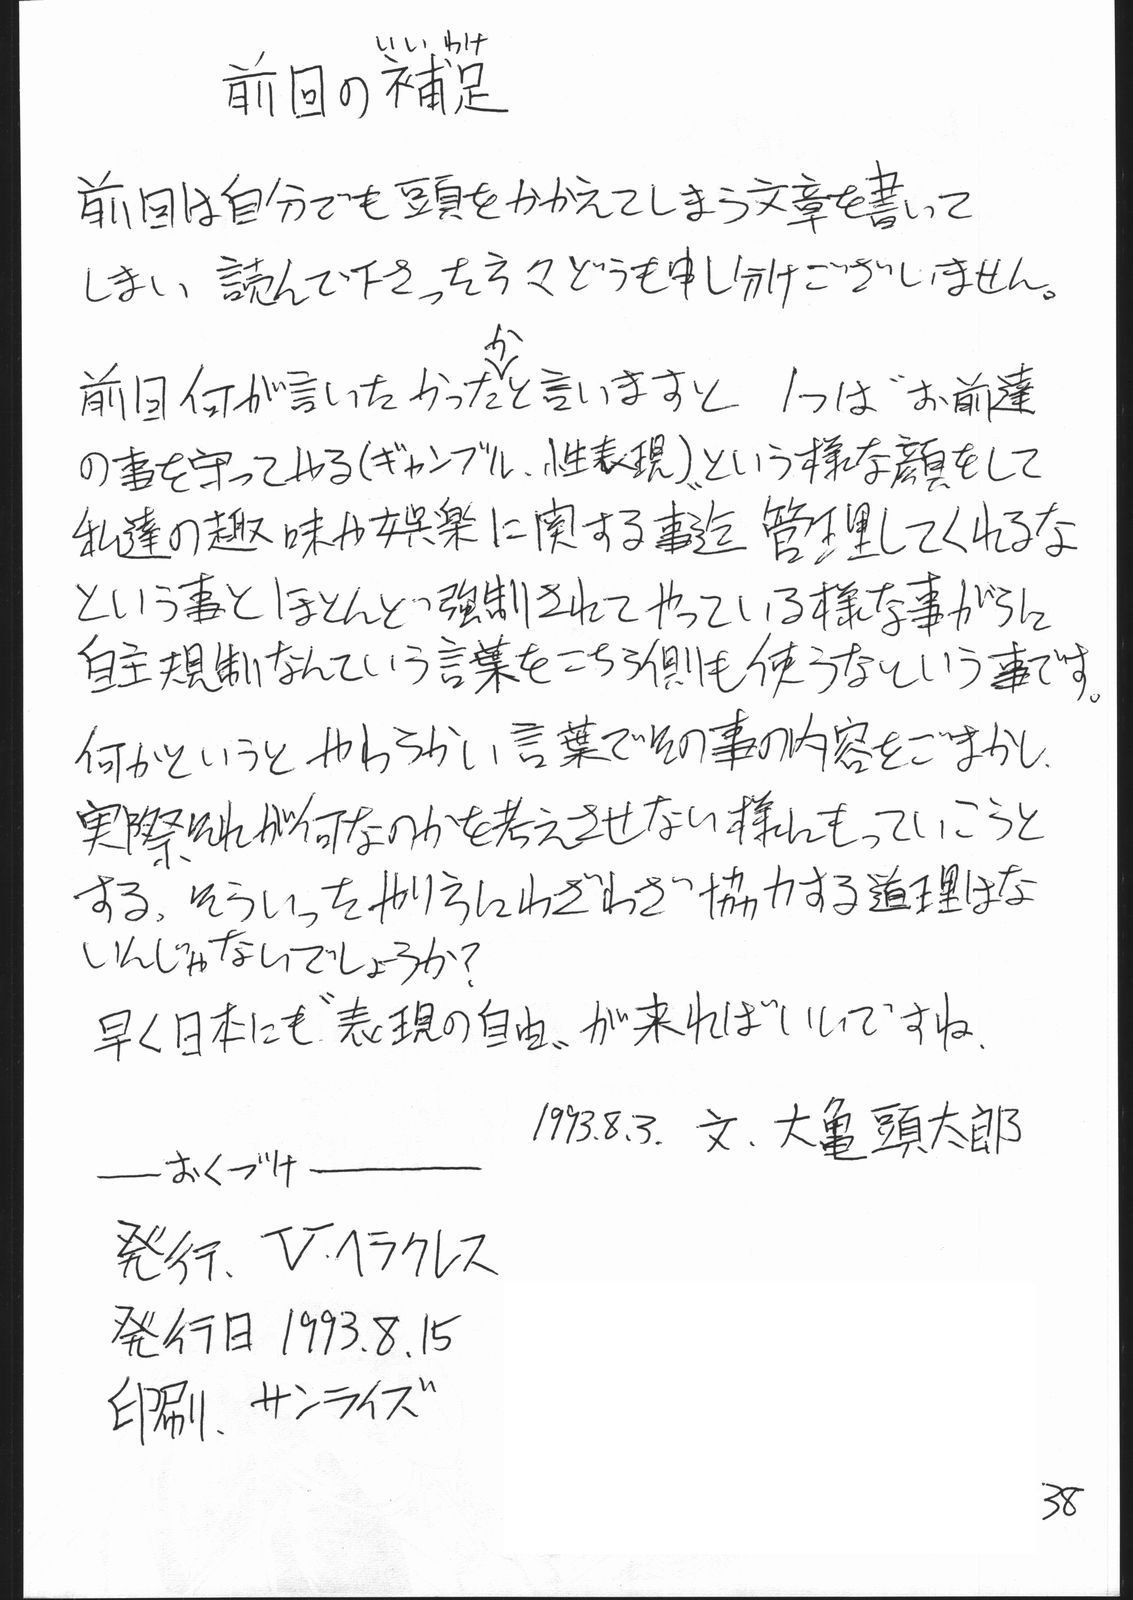 いいわけ
前回の補足
前回は自分でも頭をかかえてしまう文章を書いて
しまい 読んで下さった方々どうも申し分けございません。
か
前回何が言いたかったと言いますと 1つは〝お前達
の事を守ってやる(ギャンブル、性表現)〟という様な顔をして
私達の趣味や娯楽に関する事迄 管理してくれるな
という事と ほとんど強制されてやっている様な事がらに
自主規制なんていう言葉をこちら側も使うなという事です。
何かというと やわらかい言葉でその事の内容をごまかし、
実際それが何なのかを考えさせない様にもっていこうと
する、そういったやり方にわざわざ協力する道理はな
いんじゃないでしょうか?
早く日本にも〝表現の自由〟が来ればいいですね、
1993.8.3. 文、大亀頭太郎
おくづけ
発行、V・ヘラクレス
発行日 1993.8.15
印刷、サンライズ
38